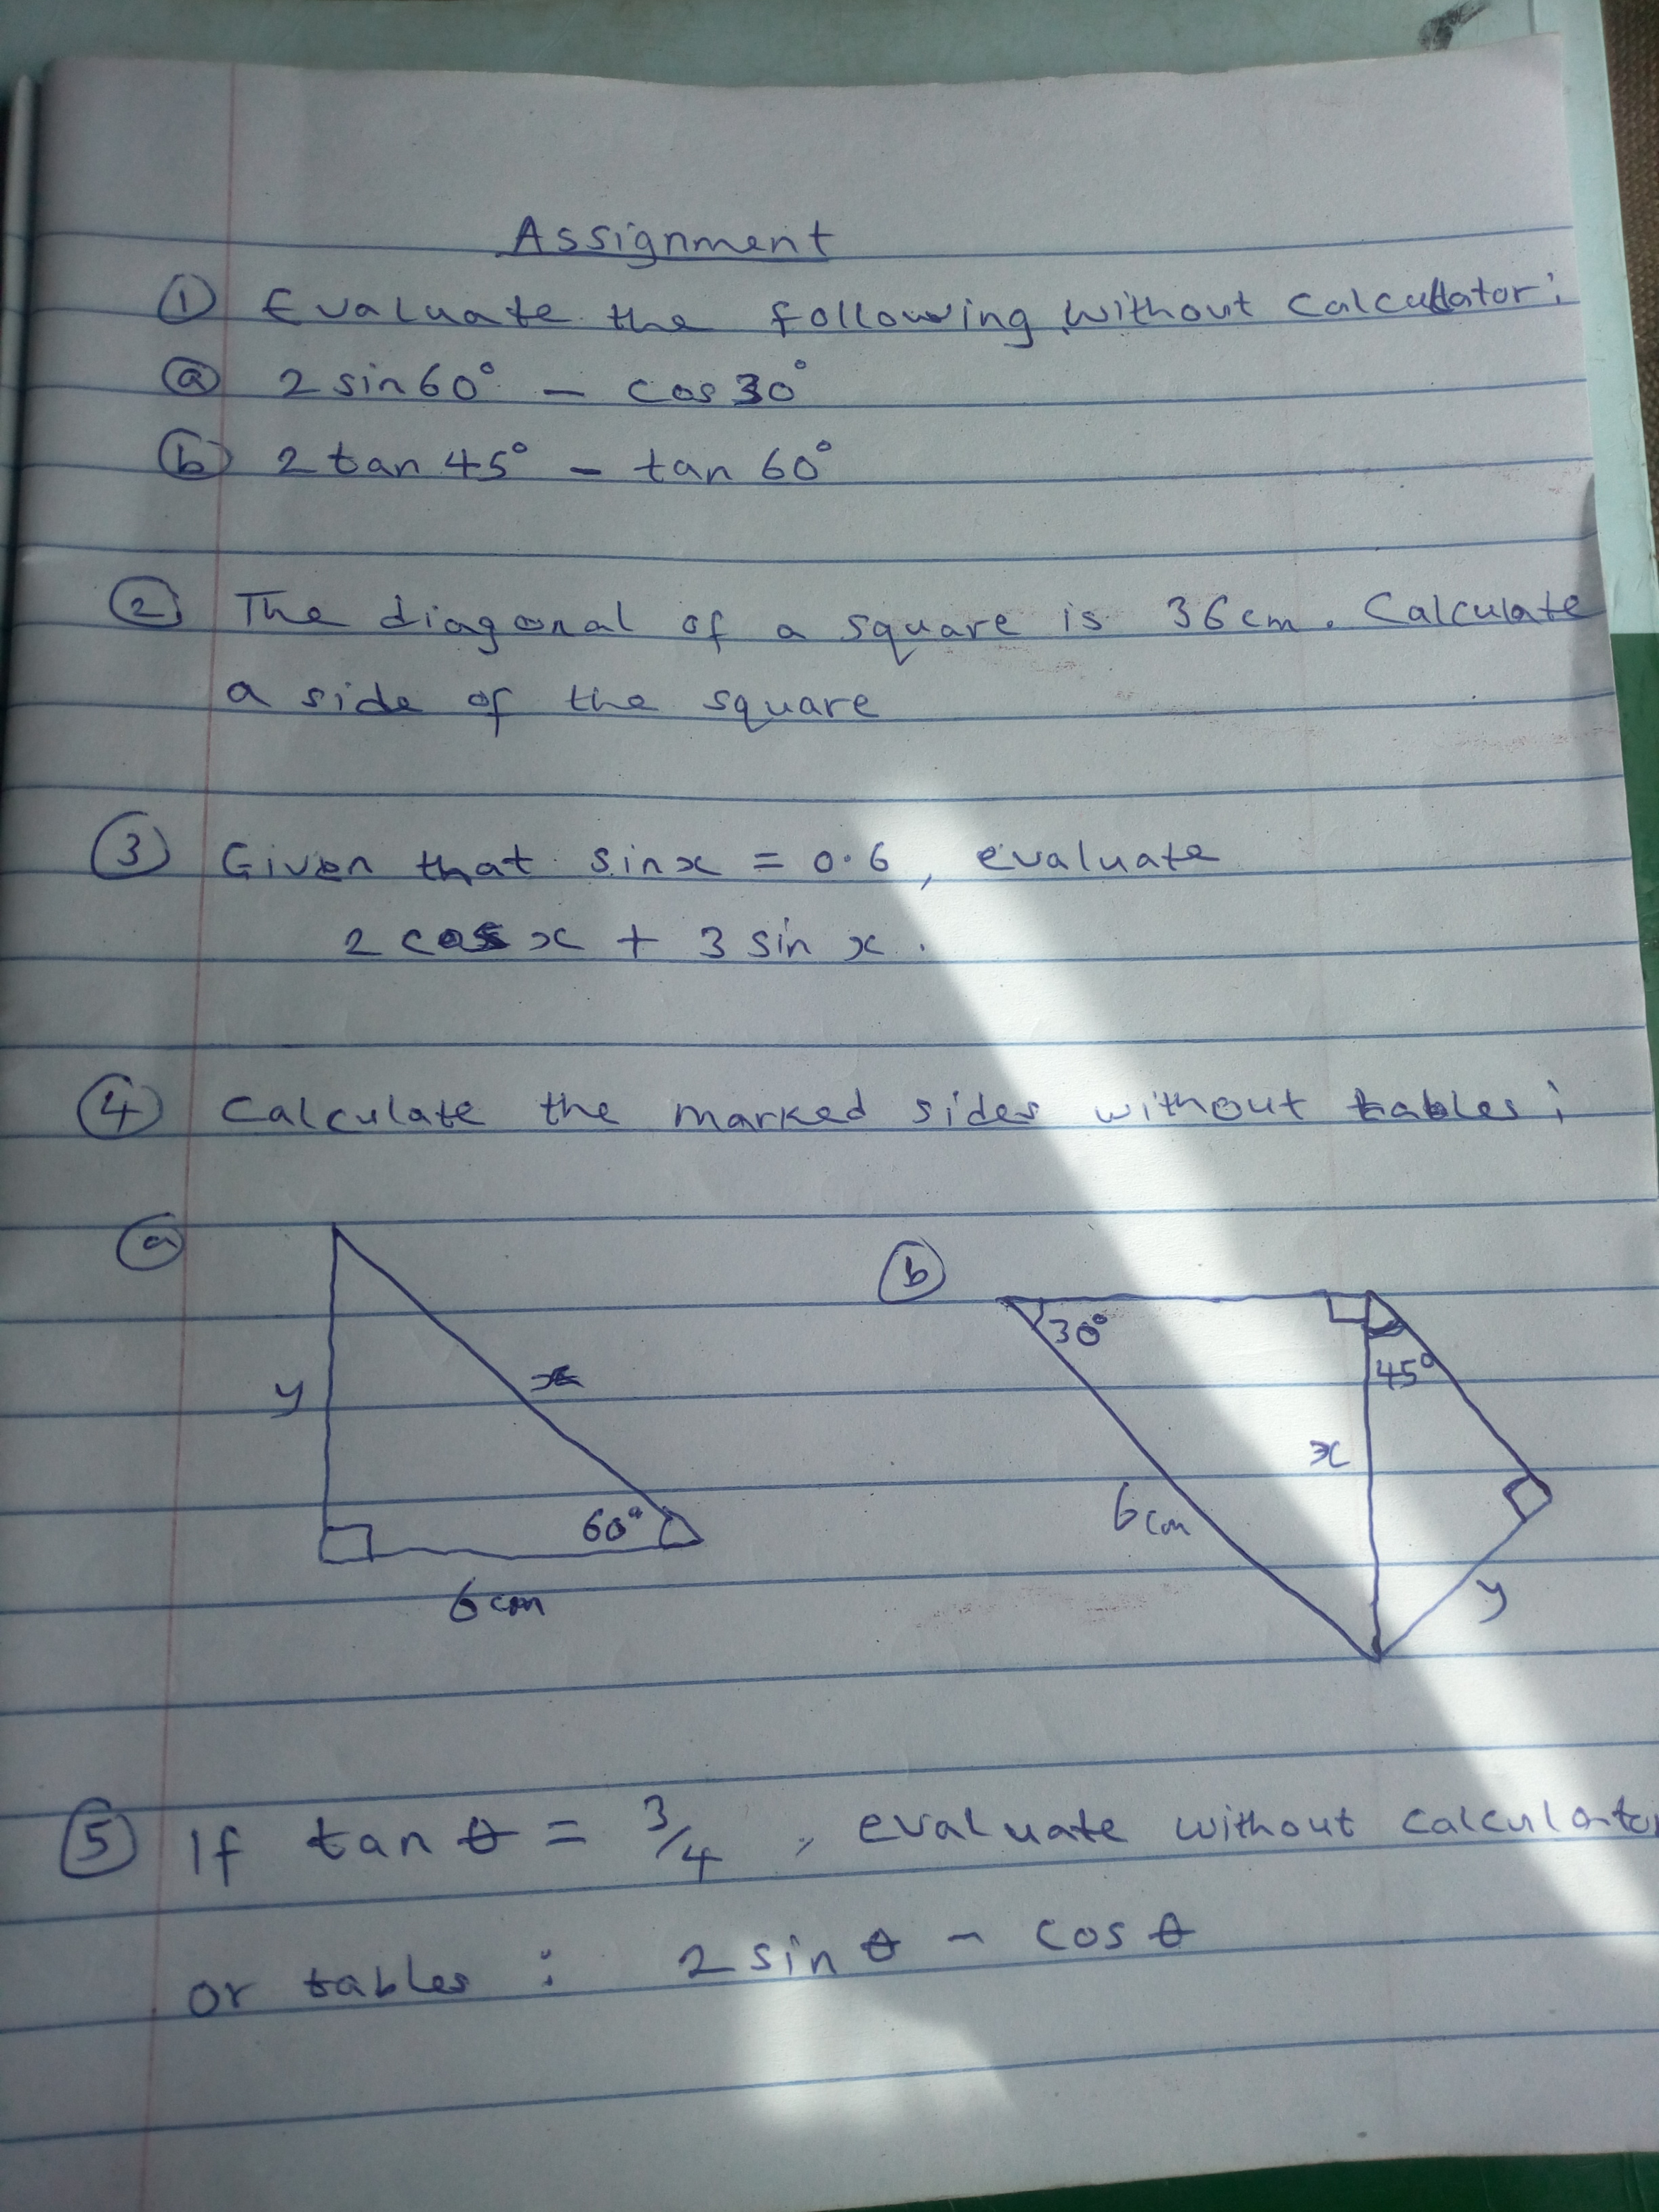 Assignment
① Evaluate the following without calculator:
ⓐ 2 sin 60° - cos 30°
ⓑ 2 tan 45° - tan 60°
② The diagonal of a square is 36cm. Calculate
a side of the square
③ Given that sin x = 0.6, evaluate
2 cos x + 3 sin x.
④ Calculate the marked sides without tables:
ⓐ
y
x
60°
6cm
ⓑ
30°
45°
x
6cm
y
⑤ If tan θ = 3/4, evaluate without calculator
or tables : 2 sin θ - cos θ